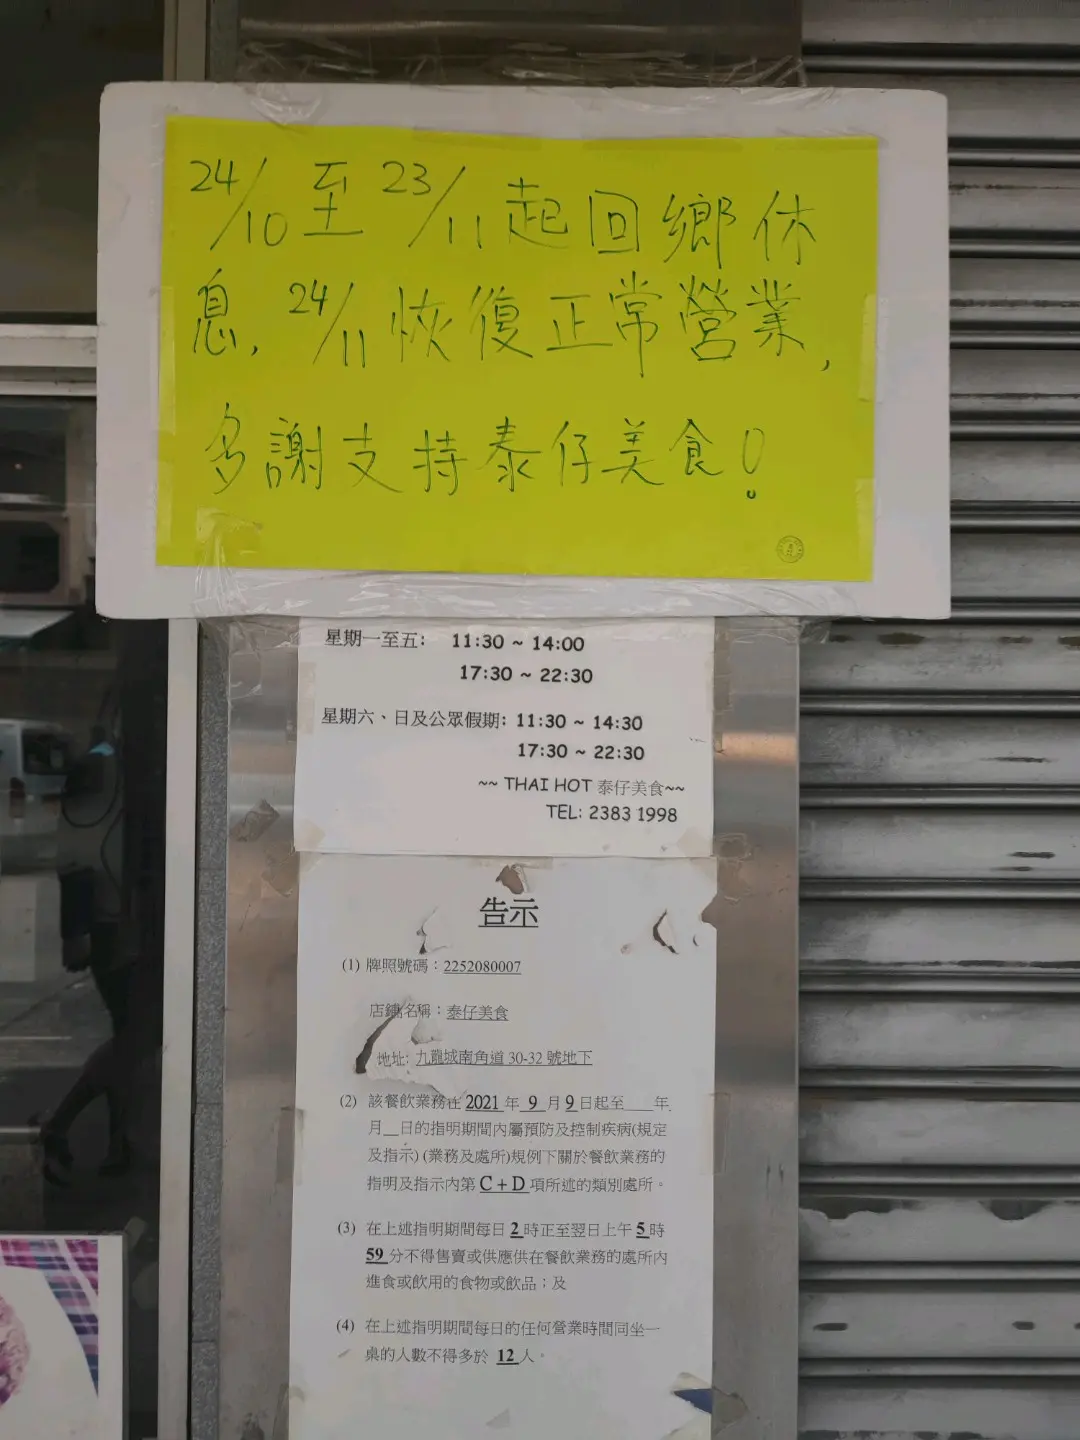 24/10 至 23/11 起回鄉休
息, 24/11 恢復正常營業,
多謝支持泰仔美食!
星期一至五: 11:30 ~ 14:00
17:30 ~ 22:30
星期六、日及公眾假期: 11:30 ~ 14:30
17:30 ~ 22:30
~~ THAI HOT 泰仔美食~~
TEL: 2383 1998
告示
(1) 牌照號碼：2252080007
店鋪名稱：泰仔美食
地址: 九龍城南角道 30-32 號地下
(2) 該餐飲業務在 2021 年 9 月 9 日起至___年
月__日的指明期間內屬預防及控制疾病(規定
及指示) (業務及處所)規例下關於餐飲業務的
指明及指示內第 C + D 項所述的類別處所。
(3) 在上述指明期間每日 2 時正至翌日上午 5 時
59 分不得售賣或供應供在餐飲業務的處所內
進食或飲用的食物或飲品；及
(4) 在上述指明期間每日的任何營業時間同坐一
桌的人數不得多於 12 人。